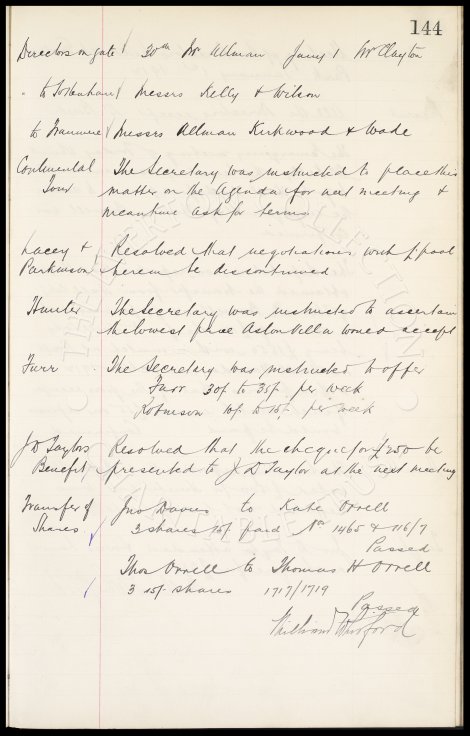 144
Directors on gate 30th Mr Allman Jany 1 Mr Clayton
" to Tottenham Messrs Kelly & Wilson
to Tranmere Messrs Allman Kirkwood & Wade
Continental The Secretary was instructed to place this
Tour matter on the Agenda for next meeting &
meantime ask for terms
Lacey & Resolved that negotiations with Lpool
Parkinson herein be discontinued
Hunter The Secretary was instructed to ascertain
the lowest price Aston Villa would accept
Furr The Secretary was instructed to offer
Furr 30/- to 35/- per week
Robinson 10/- to 15/- per week
J D Taylors Resolved that the cheque for £250 be
Benefit presented to J D Taylor at the next meeting
Transfer of Jno Davies to Kate Orrell
Shares 3 shares 15/- paid Nos 1465 & 116/7
Passed
Thos Orrell to Thomas H Orrell
3 15/- shares 1717/1719
Passed
William